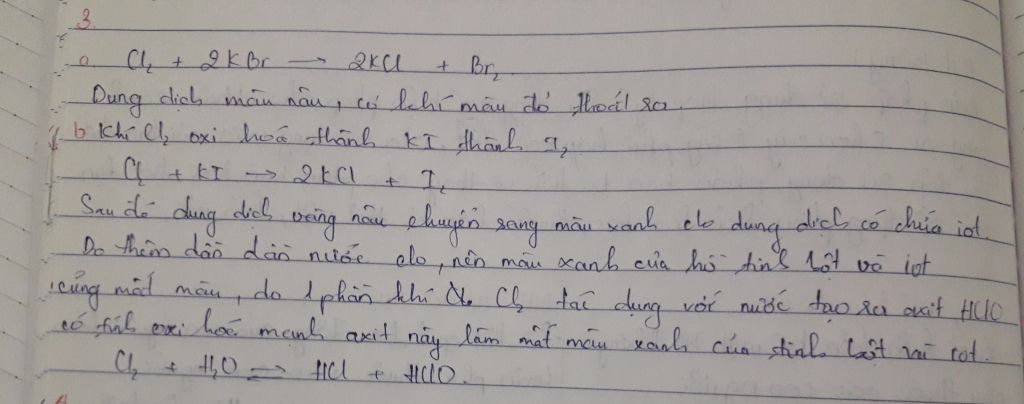 3.
a. Cl₂ + 2KBr → 2KCl + Br₂
Dung dịch màu nâu, có khí màu đỏ thoát ra.
b Khí Cl₂ oxi hoá thành KI thành I₂
Cl₂ + KI → 2KCl + I₂
Sau đó dung dịch vàng nâu chuyển sang màu xanh do dung dịch có chứa iot.
Do thêm dần dần nước clo, nên màu xanh của hồ tinh bột và iot
cũng mất màu, do 1 phần khí Cl₂ tác dụng với nước tạo ra axit HClO
có tính oxi hoá mạnh axit này làm mất màu xanh của tinh bột và iot.
Cl₂ + H₂O ⇌ HCl + HClO.